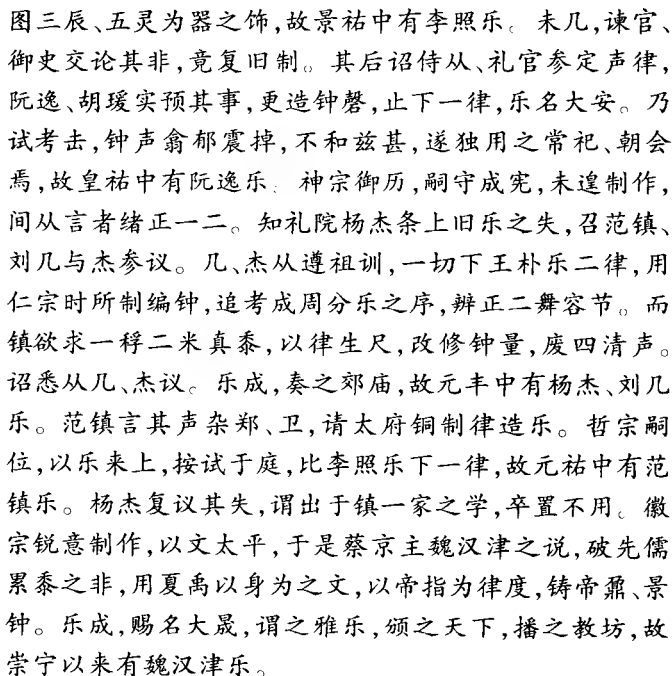 图三辰、五灵为器之饰,故景祐中有李照乐。未几,谏官、
御史交论其非,竟复旧制。其后诏侍从、礼官参定声律,
阮逸、胡瑗实预其事,更造钟磬,止下一律,乐名大安。乃
试考击,钟声弇郁震掉,不和兹甚,遂独用之常祀、朝会
焉,故皇祐中有阮逸乐。神宗御历,嗣守成宪,未遑制作,
间从言者绪正一二。知礼院杨杰条上旧乐之失,召范镇、
刘几与杰参议。几、杰从遵祖训,一切下王朴乐二律,用
仁宗时所制编钟,追考成周分乐之序,辨正二舞容节。而
镇欲求一稃二米真黍,以律生尺,改修钟量,废四清声。
诏悉从几、杰议。乐成,奏之郊庙,故元丰中有杨杰、刘几
乐。范镇言其声杂郑、卫,请太府铜制律造乐。哲宗嗣
位,以乐来上,按试于庭,比李照乐下一律,故元祐中有范
镇乐。杨杰复议其失,谓出于镇一家之学,卒置不用。徽
宗锐意制作,以文太平,于是蔡京主魏汉津之说,破先儒
累黍之非,用夏禹以身为之文,以帝指为律度,铸帝鼐、景
钟。乐成,赐名大晟,谓之雅乐,颁之天下,播之教坊,故
崇宁以来有魏汉津乐。